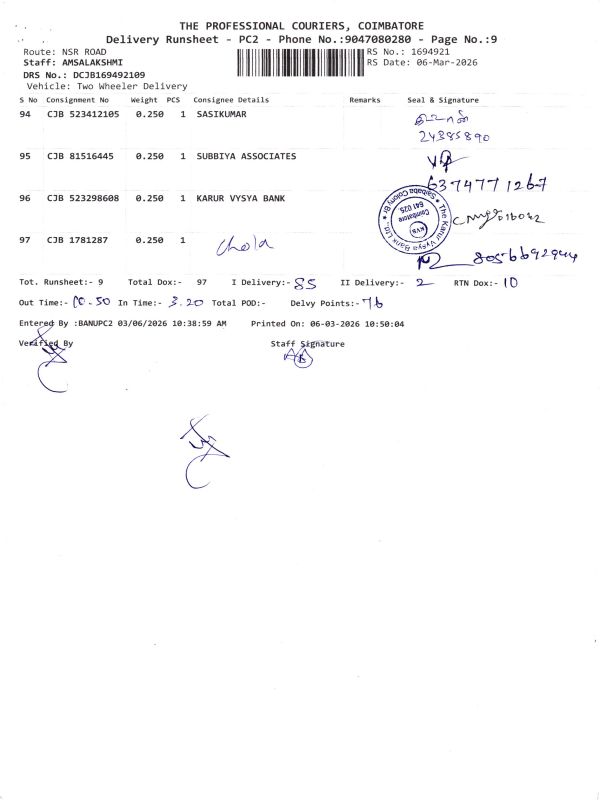 THE PROFESSIONAL COURIERS, COIMBATORE
Delivery Runsheet - PC2 - Phone No.:9047080280 - Page No.:9
Route: NSR ROAD
RS No.: 1694921
Staff: AMSALAKSHMI
RS Date: 06-Mar-2026
DRS No.: DCJB169492109
Vehicle: Two Wheeler Delivery
S No Consignment No Weight PCS Consignee Details Remarks Seal & Signature
94 CJB 523412105 0.250 1 SASIKUMAR
24385890
95 CJB 81516445 0.250 1 SUBBIYA ASSOCIATES
6374771267
96 CJB 523298608 0.250 1 KARUR VYSYA BANK
The Karur Vysya Bank Ltd., Saibaba Colony Br
KVB
Coimbatore
641 025.
97 CJB 1781287 0.250 1 Chola
8056692944
Tot. Runsheet:- 9 Total Dox:- 97 I Delivery:- 85 II Delivery:- 2 RTN Dox:- 10
Out Time:- 10.50 In Time:- 3.20 Total POD:- Delvy Points:- 76
Entered By :BANUPC2 03/06/2026 10:38:59 AM Printed On: 06-03-2026 10:50:04
Verified By Staff Signature